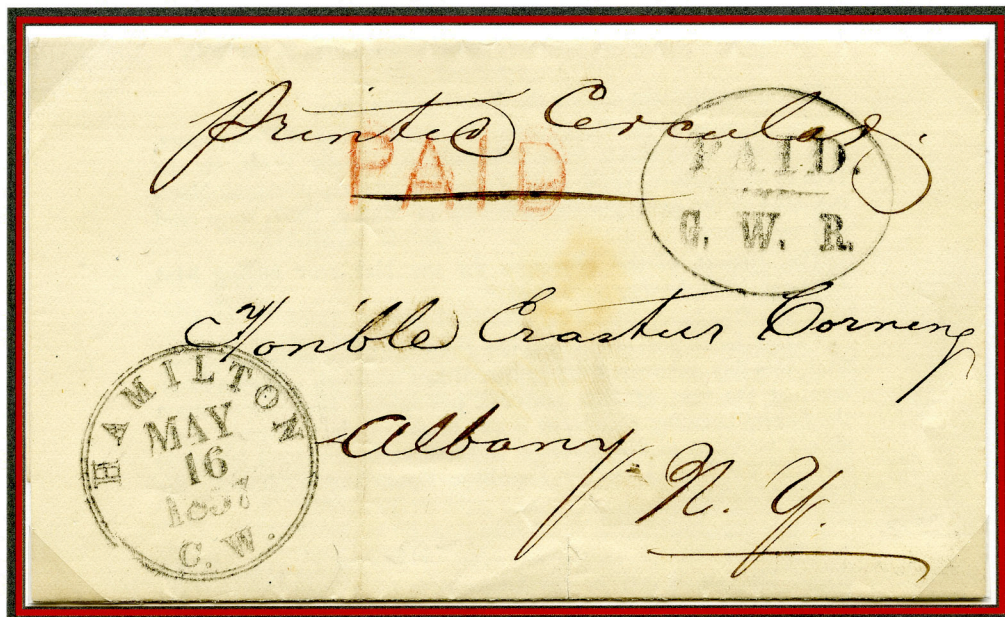 Printed Circular.
PAID
PAID.
G. W. R.
Honible Erastus Corning
Albany
N. Y.
HAMILTON
MAY
16
1857
C. W.